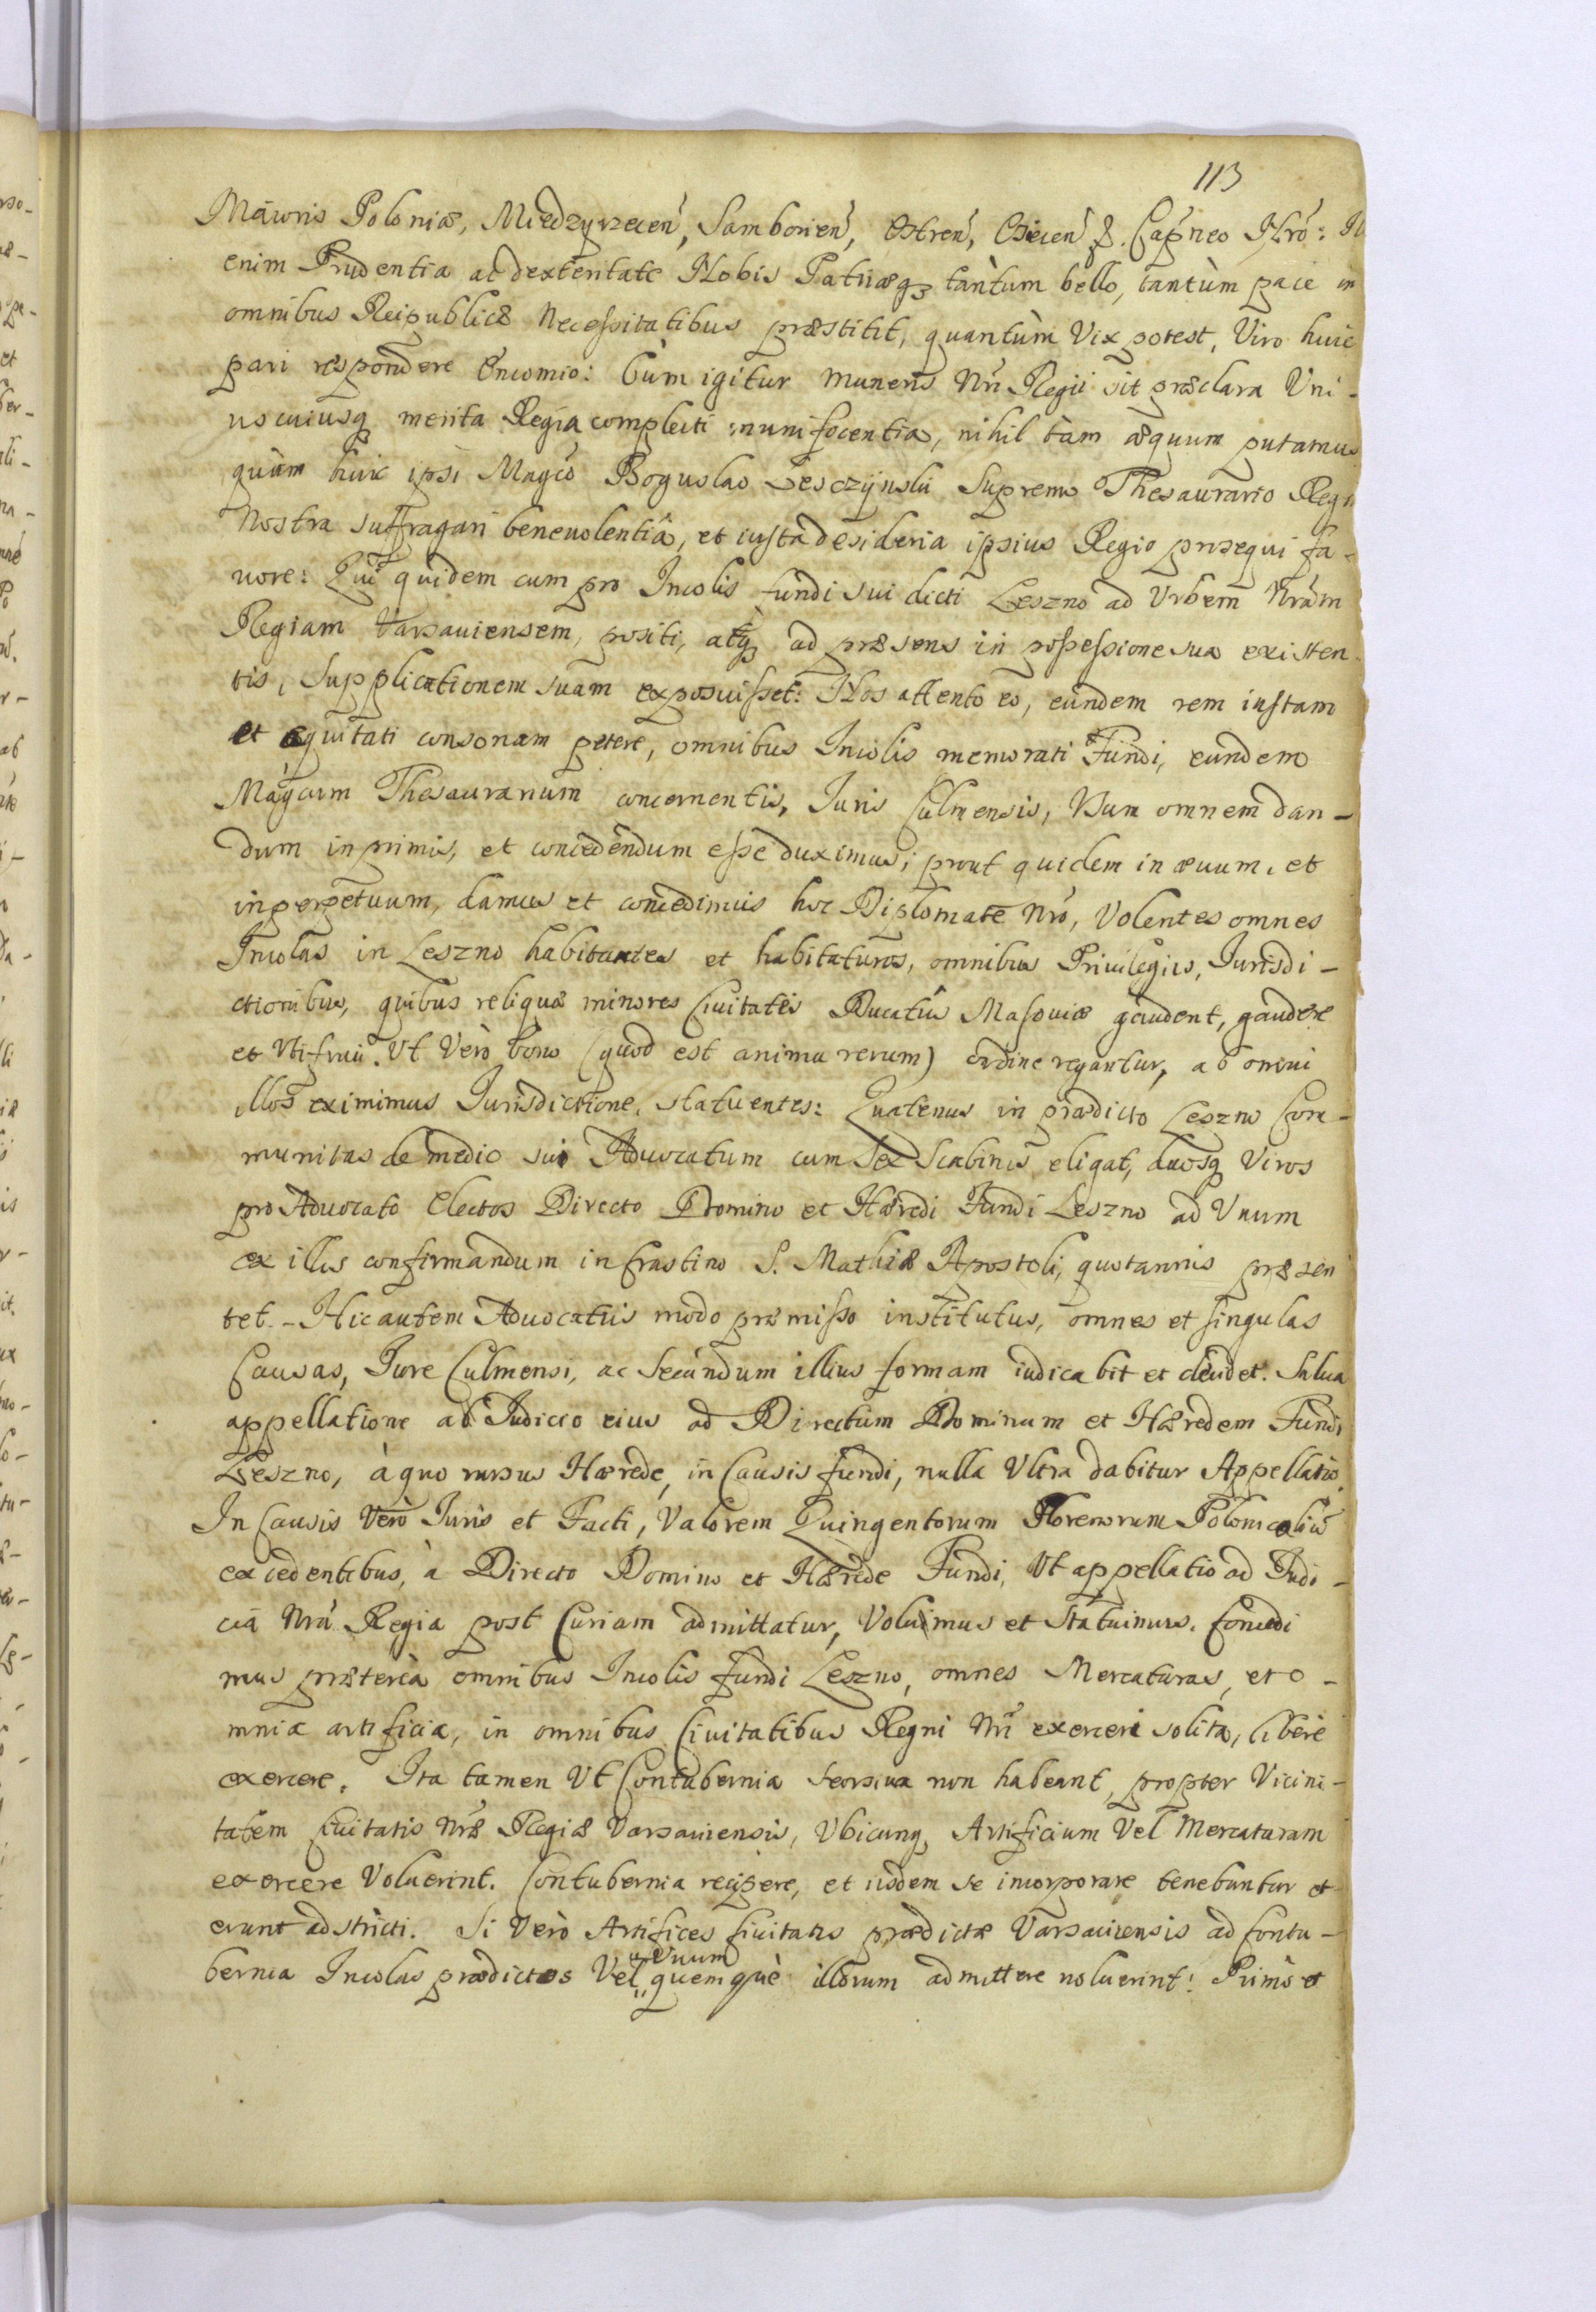 113
Maioris Poloniæ, Miedzyrzecen̄, Samborien̄, Ostren̄, Osiecen̄ &. Cap̄neo Nr̄o:
enim Prudentia ac dexteritate Nobis Patriæq₃ tantùm bello, tantùm pace in
omnibus Reipublicæ Necessitatibus præstitit, quantùm Vix potest, Viro huic
pari respondere Encomio: Cùm igitur muneris Nr̄i Regii sit præclara Uni-
uscuiusq₃ merita Regia complecti munificentia, nihil tàm æquum putamus
quàm huic ipsi Magc̄o Boguslao Lesczÿnski Supremo Thesaurario Regni
Nostra suffragari beneuolentiâ, et iusta desideria ipsius Regio prosequi fa-
uore: Qui quidem cum pro Incolis fundi sui dicti Leszno ad Urbem Nr̄am
Regiam Varsauiensem, positi, atq₃ ad præsens in possessione sua existen-
tis, Supplicationem suam exposuisset: Nos attento eo, eundem rem iustam
et æquitati consonam petere, omnibus Incolis memorati Fundi, eundem
Magcum Thesaurarium concernentis, Juris Culmensis, Usum omnem dan-
dum inprimis, et concedendum esse duximus; prout quidem in æuum, et
inperpetuum, damus et concedimus hoc Diplomate Nr̄o, Volentes omnes
Incolas in Leszno habitantes et habitaturos, omnibus Priuilegiis, Jurisdi-
ctionibus, quibus reliquæ minores Ciuitates Ducatûs Masouiæ gaudent, gaudere
et Utifrui. Ut Verò bono (quod est anima rerum) ordine regantur, ab omni
illos eximimus Jurisdictione, statuentes: Quatenus in prædicto Leszno Com-
munitas de medio sui Aduocatum cum Sex Scabinis eligat, duosq₃ Viros
pro Aduocato Electos Directo Domino et Hæredi Fundi Leszno ad Unum
ex illis confirmandum in Crastino S. Mathiæ Apostoli, quotannis præsen
tet. - Hic autem Aduocatus modo præmisso institutus, omnes et singulas
Causas, Jure Culmensi, ac Secundum illius formam iudicabit et decidet. Salua
appellatione ab Judicio eius ad Directum Dominum et Hæredem Fundi
Leszno, à quo rursus Hærede, in Causis fundi, nulla Ultra dabitur Appellatio.
In Causis Verò Juris et Facti, Valorem Quingentorum Florenorum Polonicaliū
excedentibus, à Directo Domino et Hærede Fundi, Ut appellatio ad Judi-
cia Nr̄a Regia post Curiam admittatur, Volumus et Statuimus. Concedi
mus prætereà omnibus Incolis Fundi Leszno, omnes Mercaturas, et o-
mnia artificia, in omnibus Ciuitatibus Regni Nr̄i exerceri solita, liberè
exercere. Ita tamen Ut Contubernia Seorsiua non habeant, propter Vicini-
tatem Ciuitatis Nr̄æ Regiæ Varsauiensis, Ubicunq₃ Artificium Vel Mercaturam
exercere Voluerint. Contubernia recipere, et iisdem se incorporare tenebuntur et
erunt adstricti. Si Verò Artifices Ciuitatis prædictæ Varsauiensis ad Contu-
Unum
bernia Incolas prædictos Vel quemquè illorum admittere noluerint: Primò et